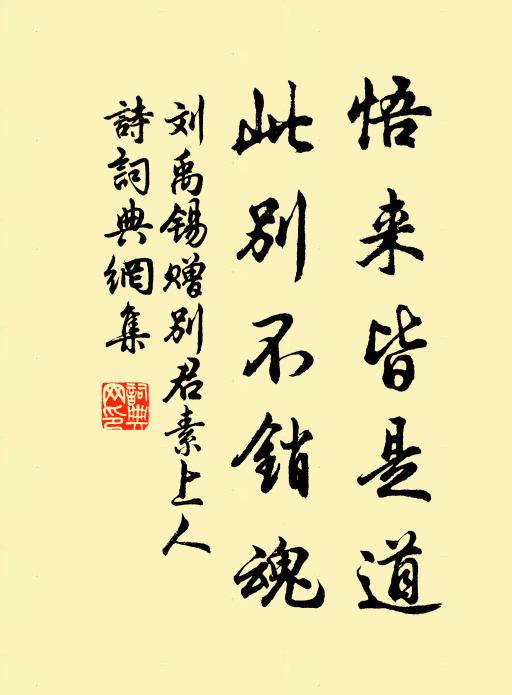 悟来皆是道
此别不銷魂
刘禹锡赠别君素上人
詩詞典網集
詞典網印